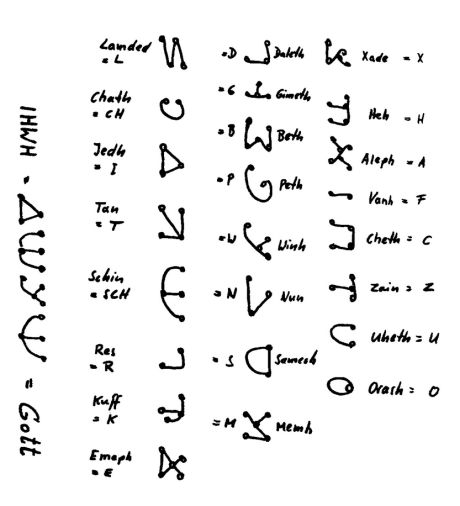 IHWH = = Gott
Lamded
= L
Chath
= CH
Jedh
= I
Tan
= T
Schin
= SCH
Res
= R
Kuff
= K
Emeph
= E
= D Daleth
= G Gimeth
= B Beth
= P Peth
= W Winh
= N Nun
= S Samesh
= M Memh
Xade = X
Heh = H
Aleph = A
Vanh = F
Cheth = C
Zain = Z
Uheth = U
Orash = O